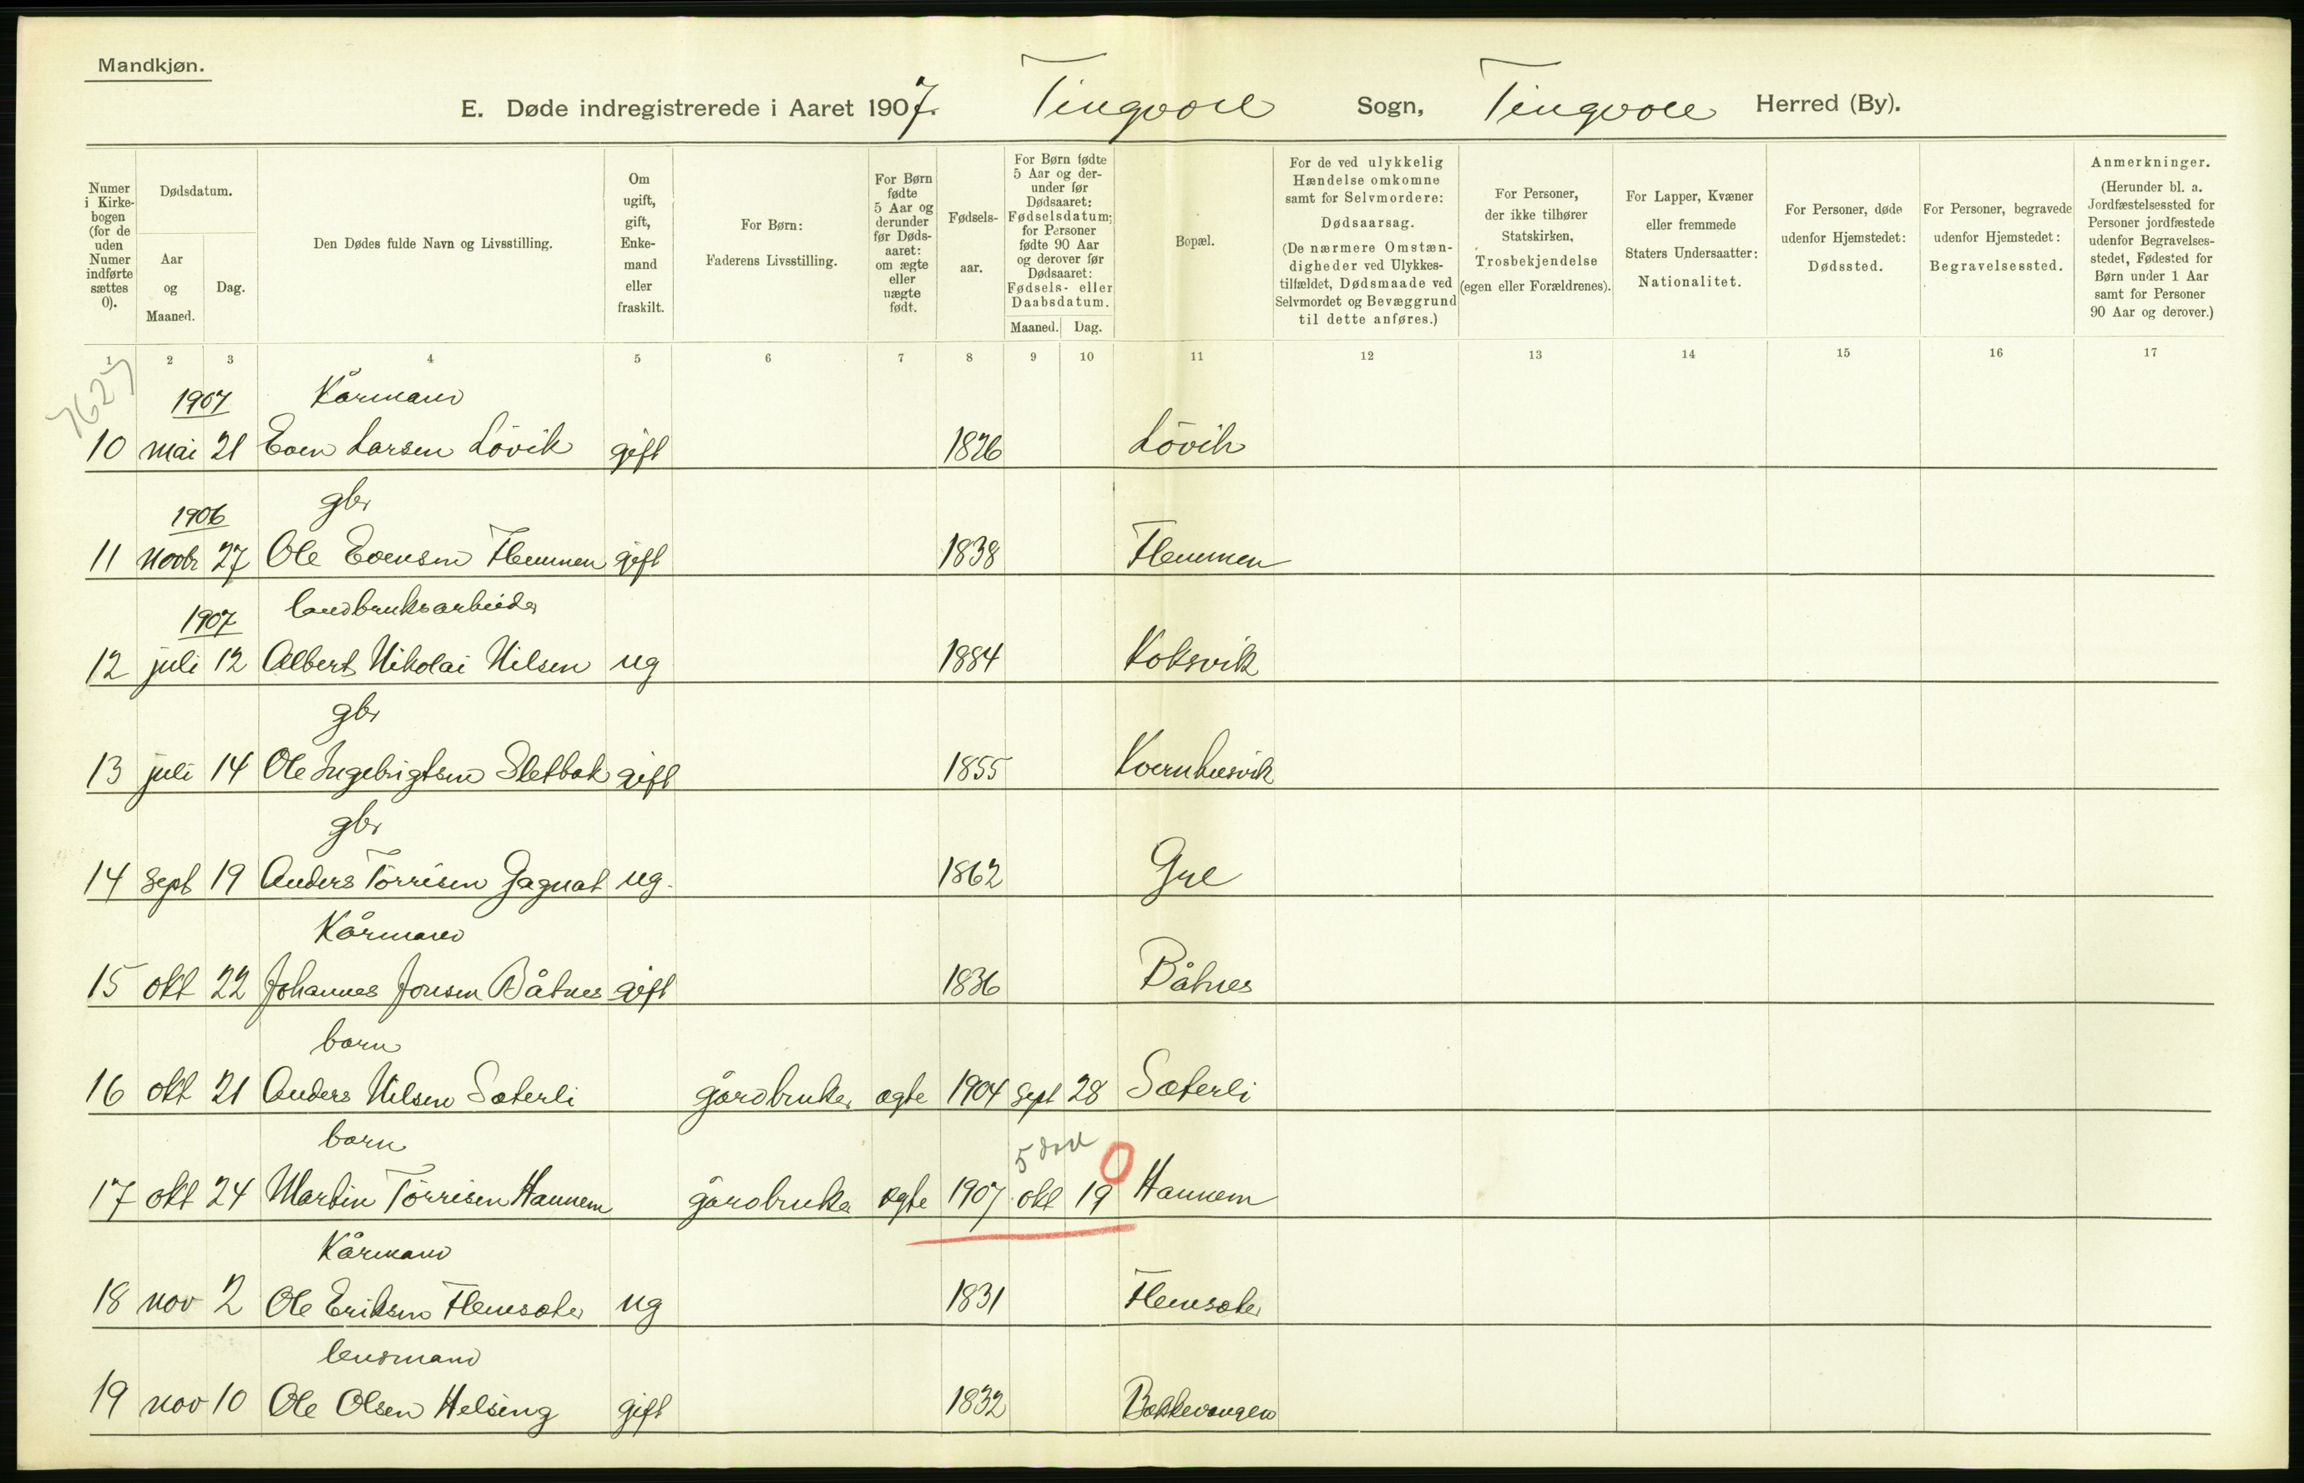 Mandkjøn.
E. Døde indregistrerede i Aaret 1907. Tingvoll Sogn, Tingvoll Herred (By).
Numer i Kirkebogen (for de uden Numer indførte sættes 0).
Dødsdatum.
Aar og Maaned.
Dag.
Den Dødes fulde Navn og Livsstilling.
Om ugift, gift, Enkemand eller fraskilt.
For Børn: Faderens Livsstilling.
For Børn fødte 5 Aar og derunder før Dødsaaret: om ægte eller uægte født.
Fødselsaar.
For Børn fødte 5 Aar og derunder før Dødsaaret: Fødselsdatum; for Personer fødte 90 Aar og derover før Dødsaaret: Fødsels- eller Daabsdatum.
Maaned. Dag.
Bopæl.
For de ved ulykkelig Hændelse omkomne samt for Selvmordere: Dødsaarsag. (De nærmere Omstændigheder ved Ulykkestilfældet, Dødsmaade ved Selvmordet og Bevæggrund til dette anføres.)
For Personer, der ikke tilhører Statskirken, Trosbekjendelse (egen eller Forældrenes).
For Lapper, Kvæner eller fremmede Staters Undersaatter: Nationalitet.
For Personer, døde udenfor Hjemstedet: Dødssted.
For Personer, begravede udenfor Hjemstedet: Begravelsessted.
Anmerkninger. (Herunder bl. a. Jordfæstelsessted for Personer jordfæstede udenfor Begravelsesstedet, Fødested for Børn under 1 Aar samt for Personer 90 Aar og derover.)
1 2 3 4 5 6 7 8 9 10 11 12 13 14 15 16 17
7627
1907 Kårmand
10 mai 21 Even Larsen Lövik gift 1826 Lövik
1906 gbr
11 novbr 27 Ole Evensen Flemmen gift 1838 Flemmen
1907 landbruksarbeider
12 juli 12 Albert Nikolai Nilsen ug 1884 Koksvik
gbr
13 juli 14 Ole Ingebrigtsen Sletbak gift 1855 Kvernhusvik
gbr
14 Sept 19 Anders Törrisen Gagnat ug. 1862 Gyl
Kårmand
15 okt 22 Johannes Jonsen Båtnes gift 1836 Båtnes
barn
16 okt 21 Anders Nilsen Sæterli gårdbruker ægte 1904 Sept 28 Sæterli
barn 5 0
17 okt 24 Martin Törrisen Hannem gårdbruker ægte 1907 okt 19 Hannem
Kårmand
18 nov 2 Ole Eriksen Flemsæter ug 1831 Flemsæter
lensmand
19 nov 10 Ole Olsen Helsing gift 1832 Bakkevangen